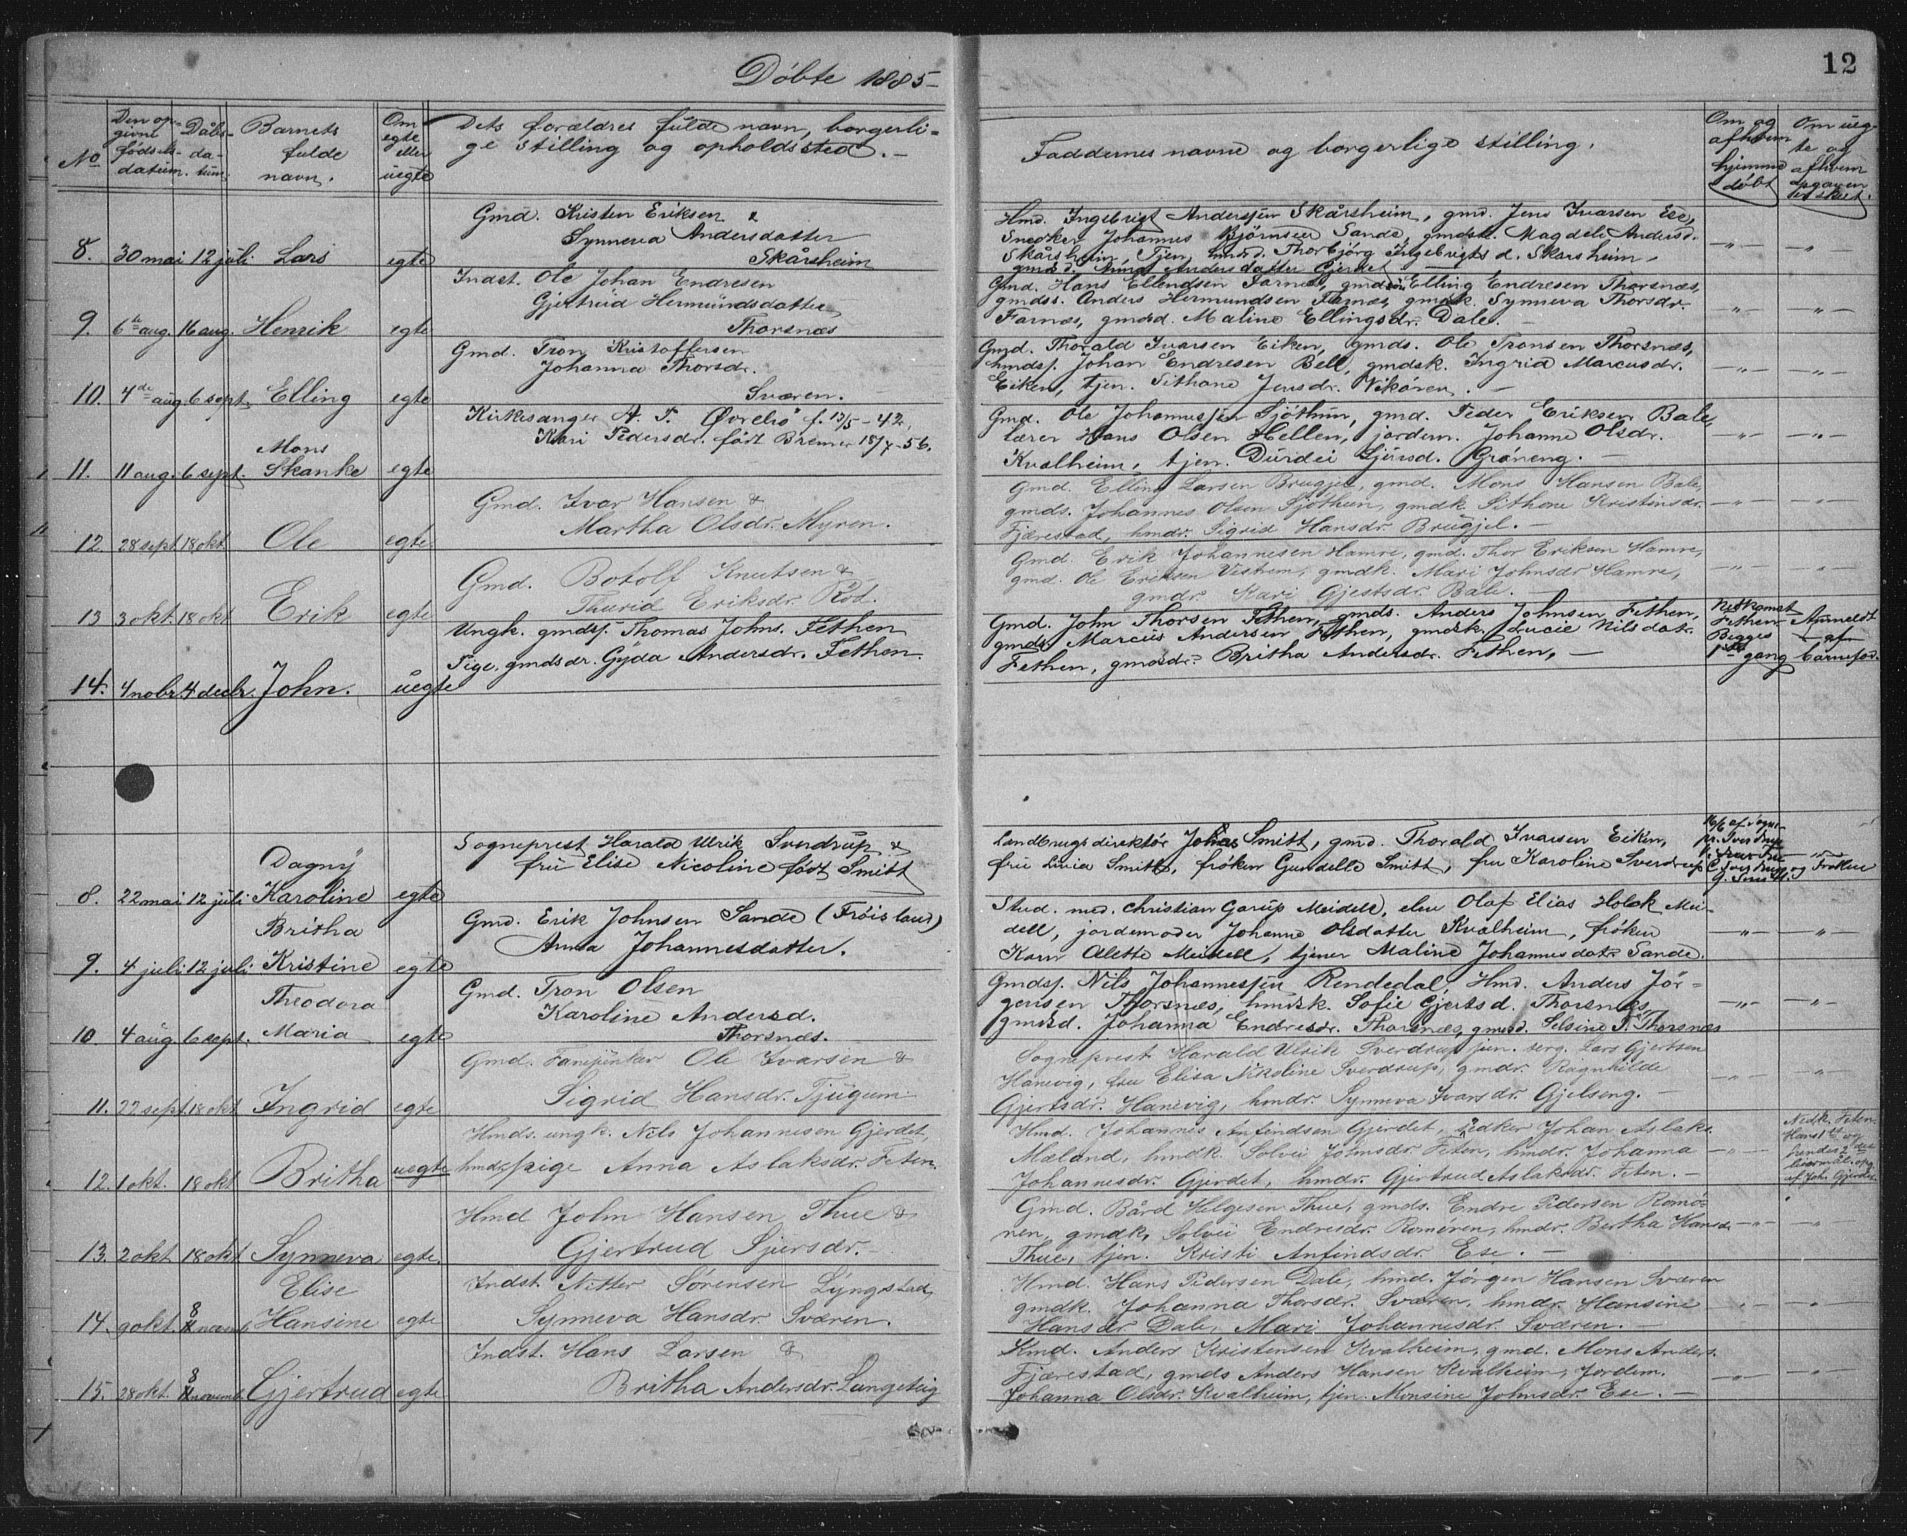 12
Døbte 1885
No
Den op-
givne
fødsels-
datum.
Dåbs-
da-
tum.
Barnets
fulde
navn.
Om
egte
eller
uegte
Dets forældres fulde navn, borgerli-
ge stilling og opholdssted. —
Faddernes navne og borgerlige stilling.
Om og
af hvem
hjemme
døbt
Om ueg-
te og
af hvem
opgaven
er skeet.
8. 30 mai 12 juli Lars egte
Gmd. Kristen Eriksen &
Synneva Andersdatter
Skårsheim
Hmd. Ingebrigt Anderssen Skårsheim, gmd. Jens Ivarsen Ese,
Snedker Johannes Bjørnsen Sande, gmdsk. Magdeli Andersd.
Skårsheim, Tjen. hmd. Thorbjørg Ingebrigtsd. Skårsheim,
gmdsd. Andersdatter Gjerdet —
9. 6te aug. 16 aug. Henrik egte
Indst. Ole Johan Endresen
Gjertrud Hermundsdatter
Thorsnæs
Gmd. Hans Ellendsen Farnæs, gmdssøn Elling Endresen Thorsnæs,
gmdss. Anders Hermundsen Farnæs, gmdsk. Synneva Thorsdr.
Farnæs, gmdsd. Maline Ellingsdr. Dale. —
10. 4de aug. 6 sept. Elling egte
Gmd. Tron Kristoffersen
Johanna Thorsdr.
Sværen.
Gmd. Thorald Ivarsen Eiken, gmds. Ole Tronsen Thorsnæs,
hmdsf. Johan Endresen Bell, gmdsk. Ingrid Marcusdr.
Eiken, tjen. Sithane Jensdr. Vikøren. —
11. 11 aug. 6 sept. Mons
Skanke egte
Kirkesanger A. T. Øvrebø f. 13/5 - 42,
Kari Pedersdr. født Bremer 18/7 - 56.
Gmd. Ole Johannessen Sjøthun, gmd. Peder Eriksen Bale,
lærer Hans Olsen Hellen, jordem. Johanne Olsdr.
Kvalheim, tjen. Durdei Sjursd. Grøneng. —
12. 28 sept 18 okt Ole egte
Gmd. Ivar Hansen &
Martha Olsdr. Myren.
Gmd. Elling Larsen Brugjel, gmd. Mons Hansen Bale,
gmds. Johannes Olsen Sjøthun, gmdsk Sithane Kristensdr.
Fjærestad, hmdr. Sigrid Hansdr. Brugjel. —
13 3 okt. 18 okt Erik egte
Gmd. Botolf Knutsen &
Thurid Eriksdr. Rød.
Gmd. Erik Johannesen Hamre, gmd. Thor Eriksen Hamre,
gmd. Ole Eriksen Vestrem, gmdk. Mari Johnsdr Hamre,
gmdr. Kari Gjestsdr. Bale. —
14. 4 nobr. 4 decbr. John. uegte
Ungk. gmdsf. Thomas Johns. Fethen
Pige. gmdsdr. Gyda Andersdr. Fethen.
Gmd. John Thorsen Fethen, gmds. Anders Johnsen Fethen,
gmds. Marcus Andersen Fethen, gmdsk. Lucie Nilsdatr.
Fethen, gmdsdr. Britha Andersdr. Fethen, —
Nedkomst
Fethen
Begges
1ste gang
Anmeldt
af
barnefad.
8. 22 mai 12 juli Dagny
Karoline egte
Sogneprest Harald Ulrik Sverdrup &
frue Elise Nicoline født Smitt
Landbrugsdirektør Johas Smitt, gmd. Thorald Ivarsen Eiken,
frue Livia Smitt, frøken Gundelle Smitt, fru Karoline Sverdrup og Frøken
16/6 af sogne-
9. 4 juli 12 juli Britha
Kristine egte
Gmd. Erik Johnsen Sande (Frøisland)
Anna Johannesdatter.
Stud. med. Christian Garup Meidell, elev Olaf Elias Holck Mei-
dell, jordemoder Johanne Olsdatter Kvalheim, frøken
Karn Alette Meidell, tjener Maline Johannesdatr Sande.
10 4 aug. 6 sept. Theodora
Maria egte
Gmd. Tron Olsen
Karoline Andersd.
Thorsnæs.
Gmdsf. Nils Johannessen Rendedal, Hmd. Anders Jør-
gensen Thorsnæs, hmdsk. Sofie Gjertsd. Thorsnæs,
gmdsd. Johanna Endresdr. Thorsnæs, gmdsd. Selsine T. Thorsnæs
11. 22 sept. 18 okt Ingrid egte
Gmd. Fanejunkar Ole Ivarsen &
Sigrid Hansdr. Tjugum
Sogneprest Harald Ulrik Sverdrup jun. serg. Lars Gjertsen
Hanevig, fru Elisa Nikoline Sverdrup, gmdr. Ragnhilde
Gjertsdr. Hanevig, hmdr. Synneva Ivarsdr. Gjelseng. —
12. 1 okt. 18 okt Britha uegte
Hmds. ungk. Nils Johannesen Gjerdet,
hmds/pige Anna Aslaksdr. Feten.
Hmd. Johannes Anfindsen Gjerdet, sedker Johan Aslaks.
Mæland, hmdk. Solvei Johnsdr. Feten, hmdr. Johanna
Johannesdr. Gjerdet, hmdr. Gjertrud Aslaksdr. Feten. —
Nedk. Feten.
Hans 1ste og
hendes 2det
leiermål. opg.
af Joh. Gjerdet
13. 2 okt. 18 okt Synneva egte.
Hmd John Hansen Thue &
Gjertrud Sjursdr. —
Gmd. Bård Helgesen Thue, gmds. Endre Pedersen Romø-
ren, gmdk, Solvei Endresdr Romøren, hmdr. Bertha Hansdr
Thue, tjen. Kristi Anfindsdr. Ese. —
14. 9 okt. 8 novmb. Elise
Hansine egte
Indst. Nitter Sørensen Lyngstad,
Synneva Hansdr. Sværen.
Hmd. Hans Pedersen Dale, hmd. Jørgen Hansen Sværen
gmdk. Johanna Thorsdr. Sværen, hmdr. Hansine
Hansdr Dale, Mari Johannesdr. Sværen. —
15. 28 okt. 8 novemb. Gjertrud egte
Indst. Hans Larsen &
Britha Andersdr. Langeteig
Kmd. Anders Kristensen Kvalheim, gmd. Mons Anders.
Fjærestad, gmds Anders Hansen Kvalheim, Jordem.
Johanna Olsdr. Kvalheim, tjen. Monsine Johnsdr. Ese. —